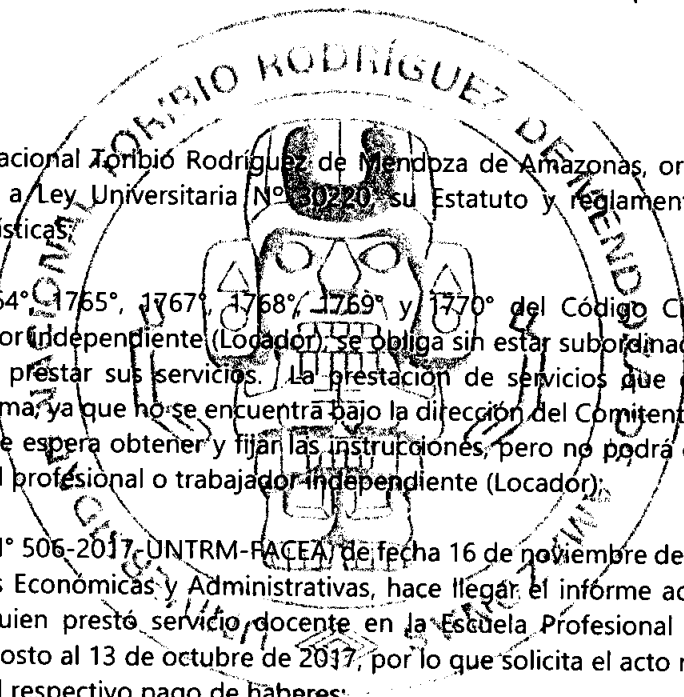 TORIBIO RODRÍGUEZ DE MENDOZA
acional Toribio Rodríguez de Mendoza de Amazonas, or
a Ley Universitaria Nº 30220, su Estatuto y reglamen
ísticas;
64°, 1765°, 1767°, 1768°, 1769° y 1770° del Código C
or independiente (Locador), se obliga sin estar subordina
prestar sus servicios. La prestación de servicios que
ma, ya que no se encuentra bajo la dirección del Comitent
e espera obtener y fijar las instrucciones, pero no podrá
l profesional o trabajador independiente (Locador);
N° 506-2017-UNTRM-FACEA, de fecha 16 de noviembre de
s Económicas y Administrativas, hace llegar el informe ac
uien prestó servicio docente en la Escuela Profesional
osto al 13 de octubre de 2017, por lo que solicita el acto r
l respectivo pago de haberes;